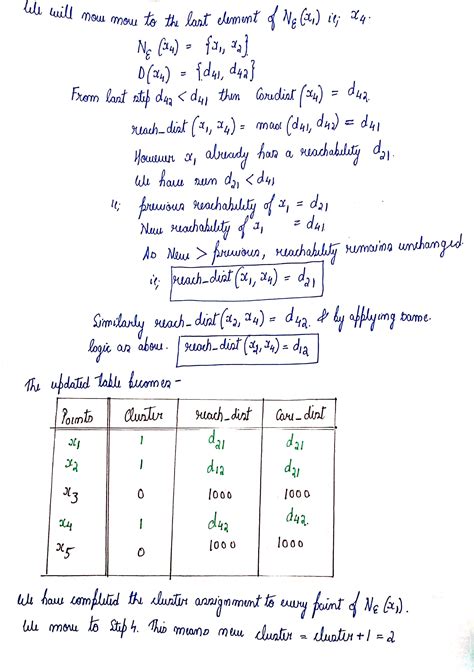 We will now move to the last element of Nε(x1) i.e; x4.
Nε(x4) = {x1, x2}
D(x4) = {d41, d42}
From last step d42 < d41 then Coredist(x4) = d42.
reach_dist(x1, x4) = max(d41, d42) = d41
However x1 already has a reachability d21.
We have seen d21 < d41
i.e; previous reachability of x1 = d21
New reachability of x1 = d41
As New > previous, reachability remains unchanged
i.e; reach_dist(x1, x4) = d21
Similarly reach_dist(x2, x4) = d42. & by applying same
logic as above. reach_dist(x2, x4) = d12
The updated table becomes-
Points Cluster reach_dist Core_dist
x1 1 d21 d21
x2 1 d12 d21
x3 0 1000 1000
x4 1 d42 d42.
x5 0 1000 1000
We have completed the cluster assignment to every point of Nε(x1).
We move to Step 4. This means new cluster = cluster + 1 = 2